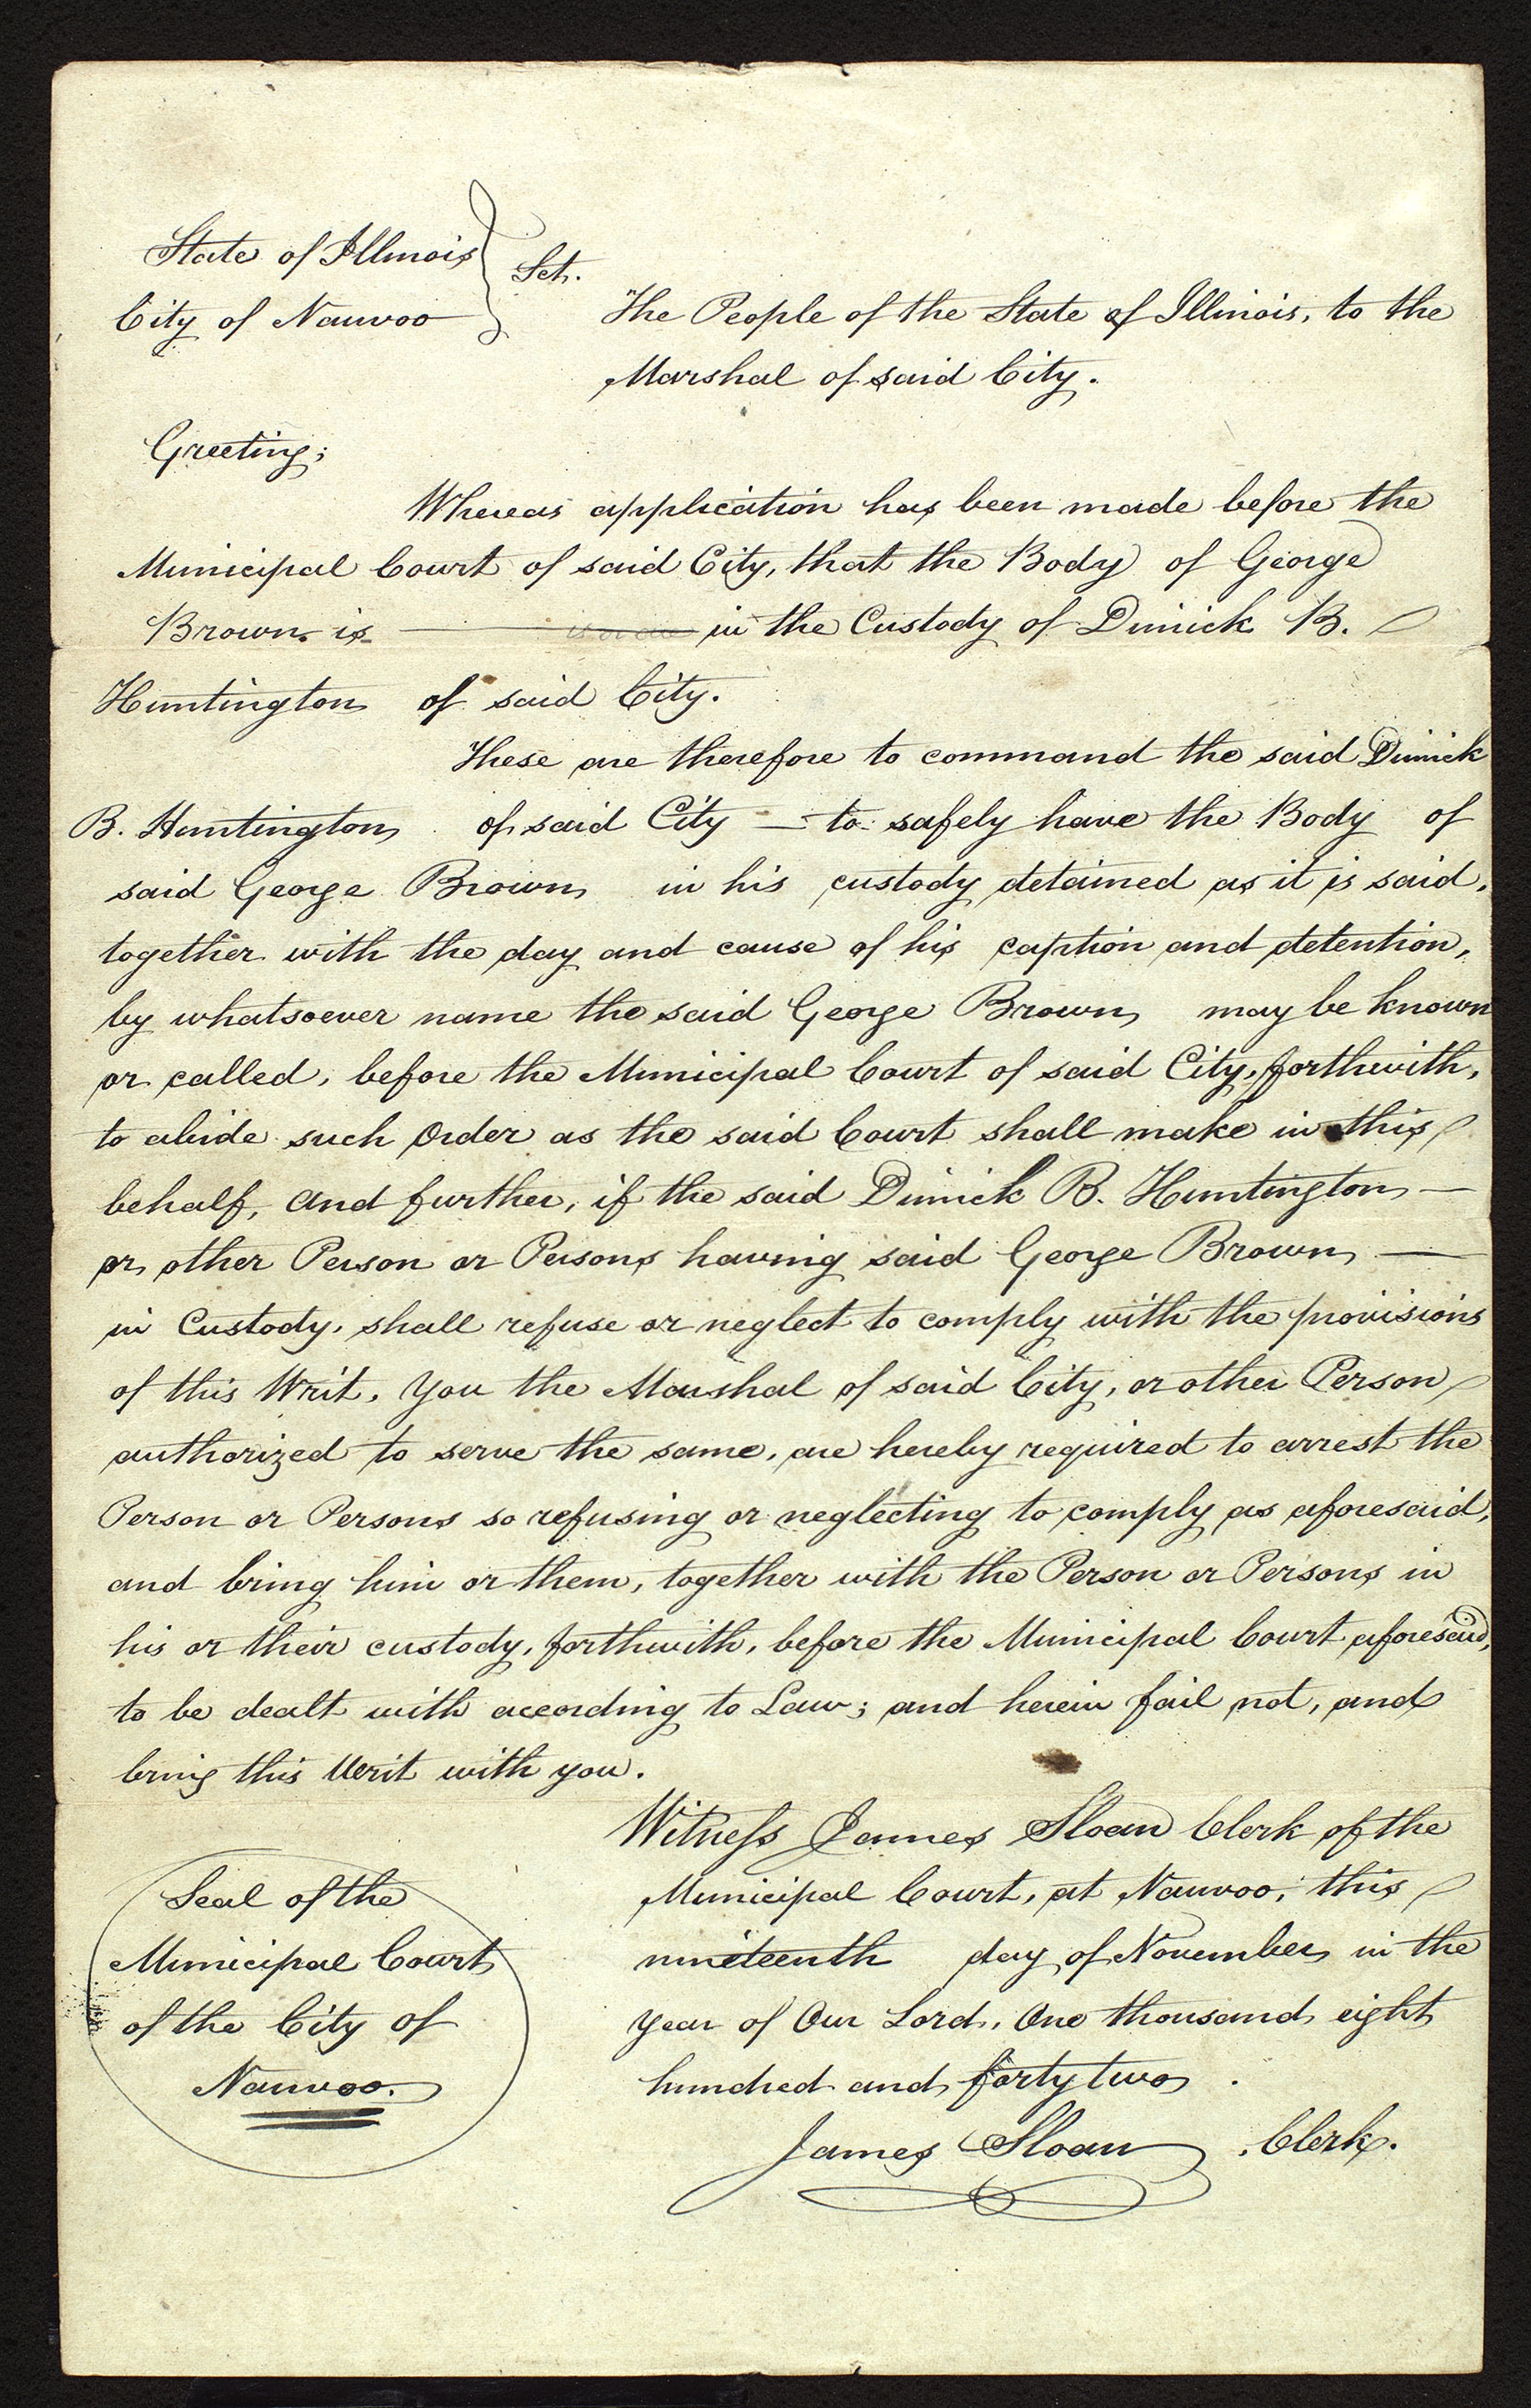 State of Illinois
City of Nauvoo
Sct.
The People of the State of Illinois, to the
Marshal of said City.
Greeting;
Whereas application has been made before the
Municipal Court of said City, that the Body of George
Brown is in the Custody of Dimick B.
Huntington of said City.
These are therefore to command the said Dimick
B. Huntington of said City — to safely have the Body of
said George Brown in his custody detained as it is said,
together with the day and cause of his caption and detention,
by whatsoever name the said George Brown may be known
or called, before the Municipal Court of said City, forthwith,
to abide such Order as the said Court shall make in this
behalf, and further, if the said Dimick B. Huntington —
or other Person or Persons having said George Brown —
in Custody, shall refuse or neglect to comply with the provisions
of this Writ, you the Marshal of said City, or other Person
authorized to serve the same, are hereby required to arrest the
Person or Persons so refusing or neglecting to comply as aforesaid,
and bring him or them, together with the Person or Persons in
his or their custody, forthwith, before the Municipal Court aforesaid,
to be dealt with according to Law; and herein fail not, and
bring this Writ with you.
Witness James Sloan Clerk of the
Municipal Court, at Nauvoo, this
nineteenth day of November in the
year of Our Lord, One thousand eight
hundred and forty two.
James Sloan, Clerk.
Seal of the
Municipal Court
of the City of
Nauvoo.